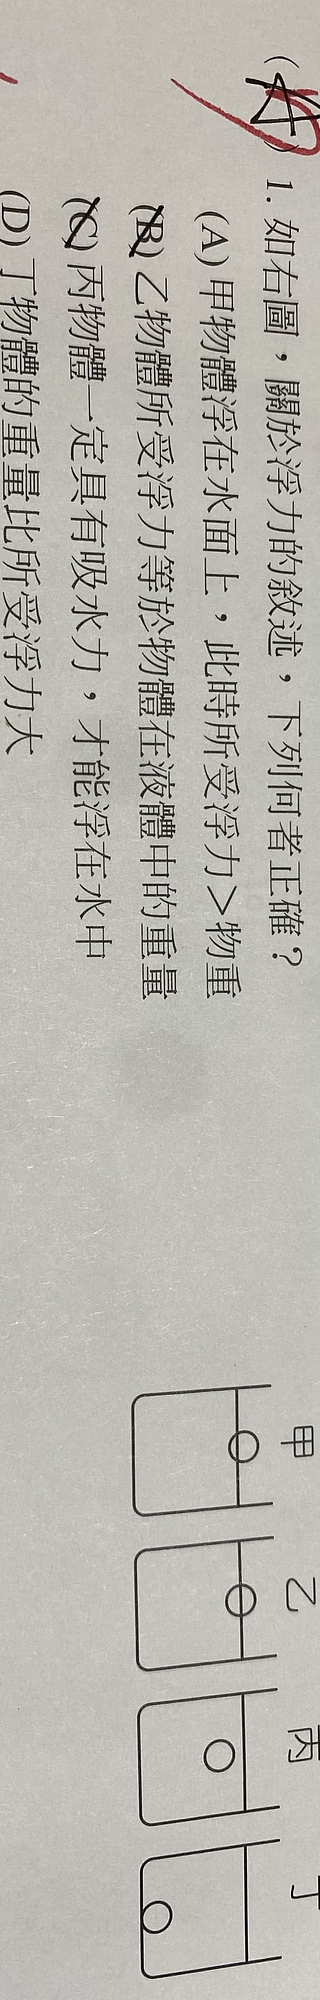 (A) 1. 如右圖，關於浮力的敘述，下列何者正確？
(A) 甲物體浮在水面上，此時所受浮力＞物重
(B) 乙物體所受浮力等於物體在液體中的重量
(C) 丙物體一定具有吸水力，才能浮在水中
(D) 丁物體的重量比所受浮力大
甲 乙 丙 丁